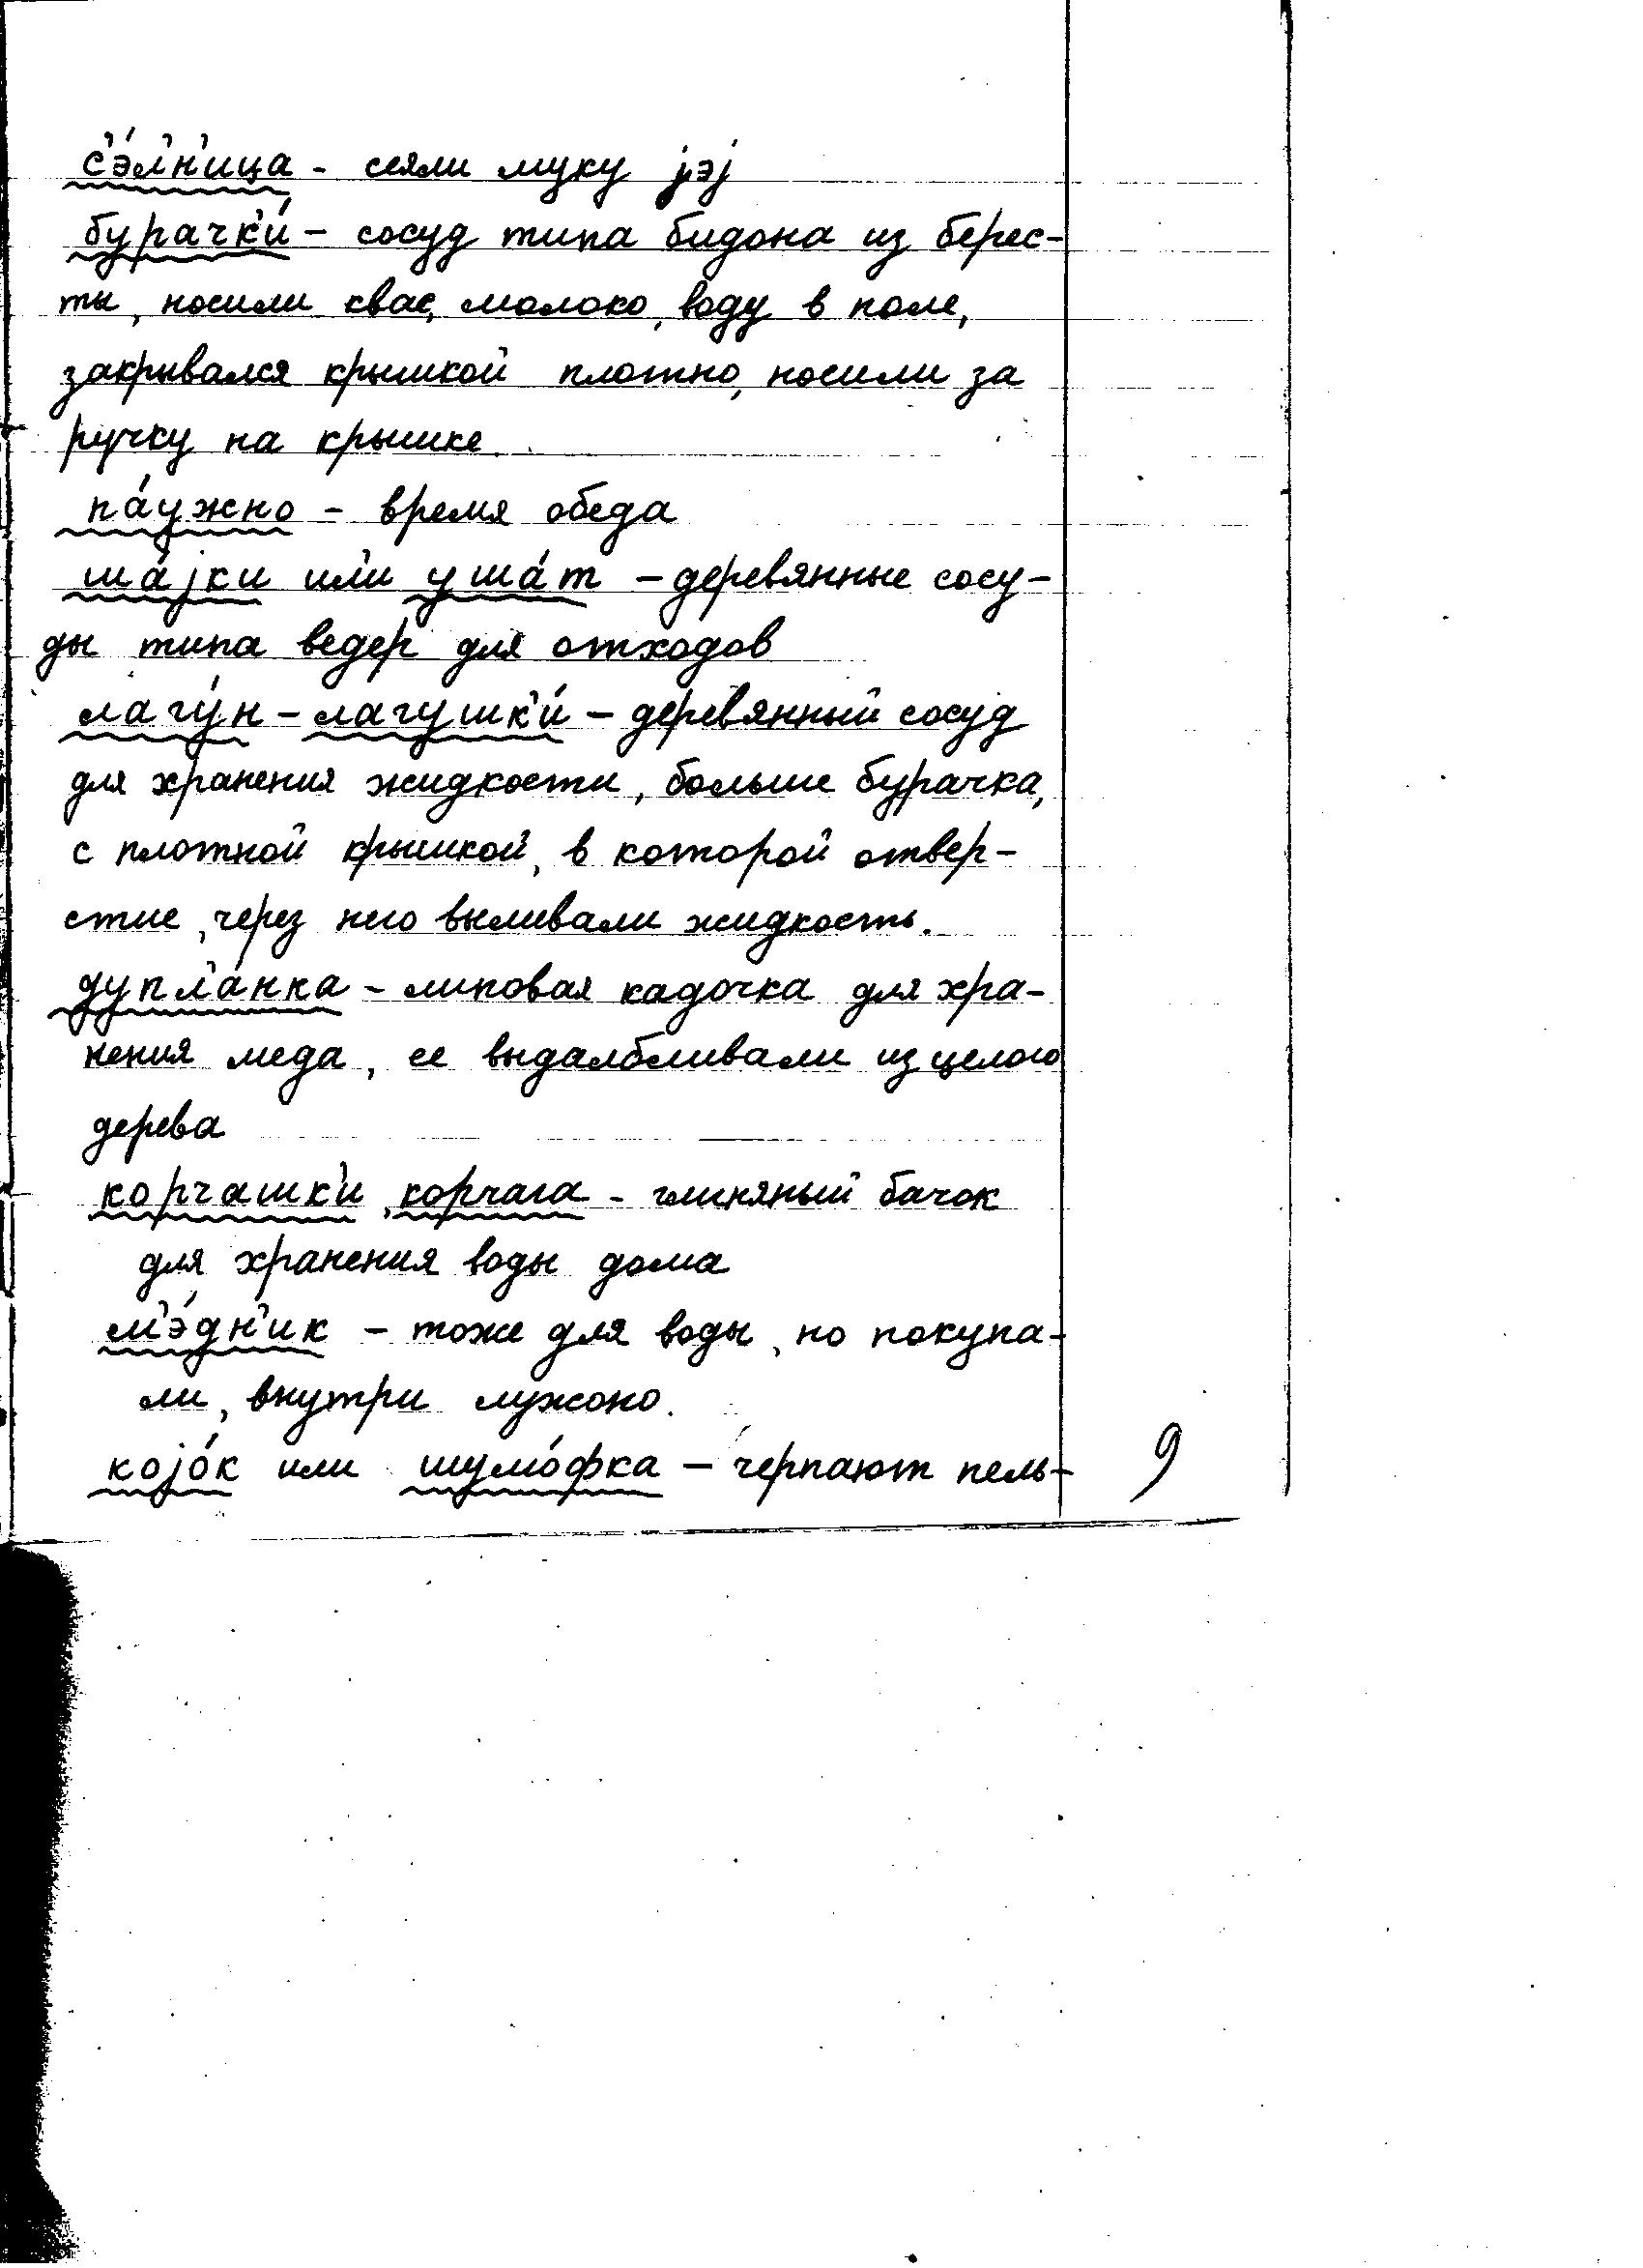 с'э́л'н'ица - сеяли муку jэj
бурачк'и́ - сосуд типа бидона из берес-
ты, носили квас, молоко, воду в поле,
закрывался крышкой плотно, носили за
ручку на крышке.
па́ужно - время обеда
ша́jки или уша́т - деревянные сосу-
ды типа ведер для отходов
лагу́н - лагушк'и́ - деревянный сосуд
для хранения жидкости, больше бурачка,
с плотной крышкой, в которой отвер-
стие, через него выливали жидкость.
дупл'а́нка - липовая кадочка для хра-
нения меда, ее выдалбливали из целого
дерева
корчашк'и, корчага - глиняный бачок
для хранения воды дома
м'э́дн'ик - тоже для воды, но покупа-
ли, внутри лужоно.
коjо́к или шумо́фка - черпают пель-
9